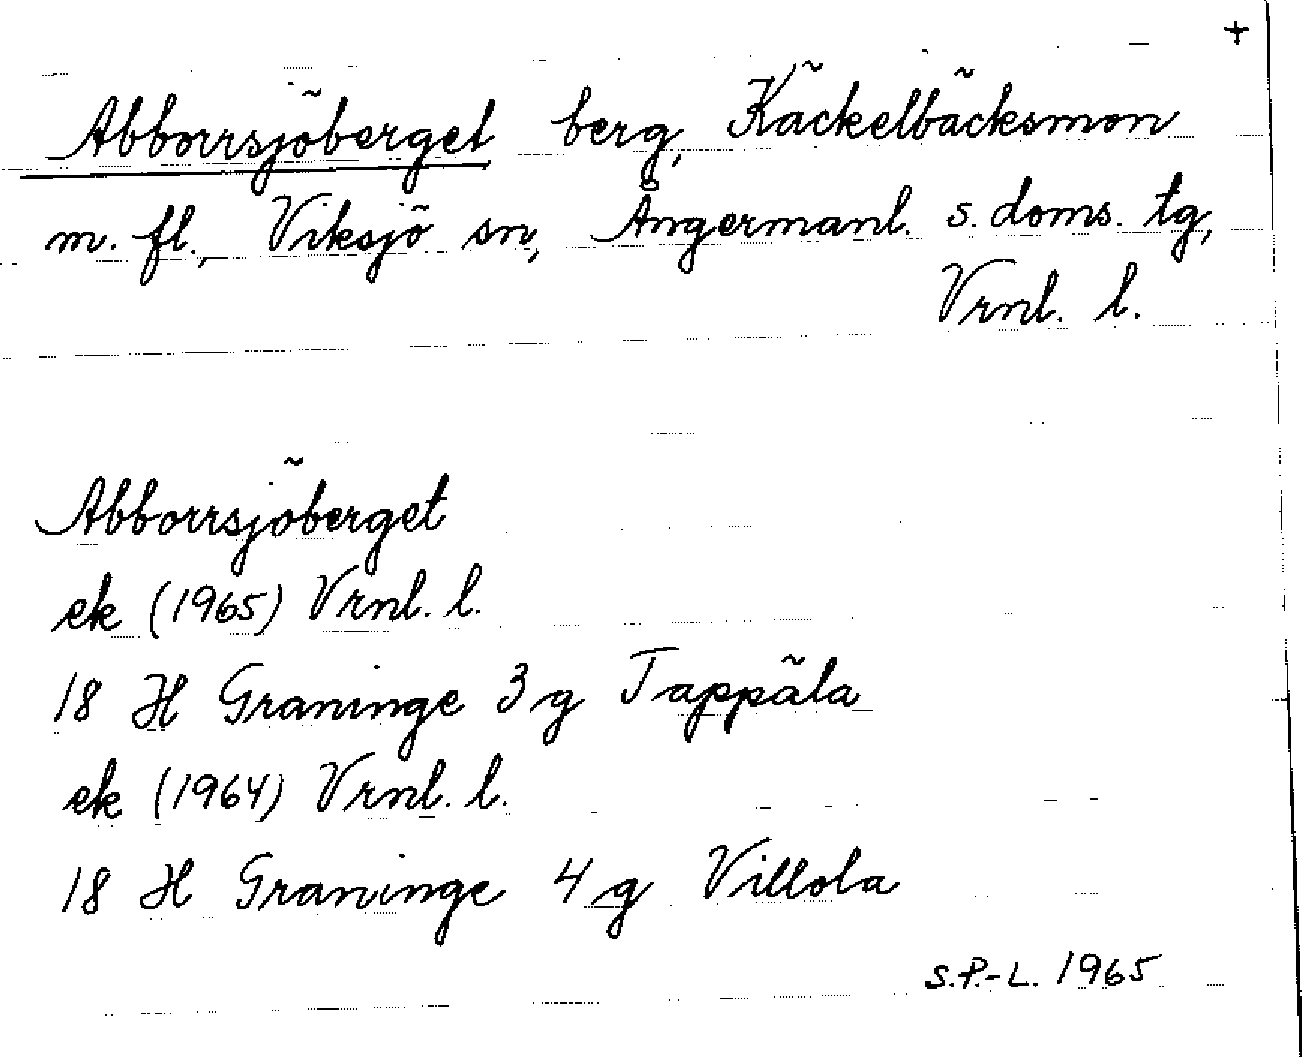 +
Abborrsjöberget berg, Käckelbäcksmon
m. fl., Viksjö sn, Ångermanl. s. doms. tg,
Vrnl. l.
Abborrsjöberget
ek (1965) Vrnl. l.
18 H Graninge 3 g Tappäla
ek (1964) Vrnl. l.
18 H Graninge 4 g Villola
S.P.-L. 1965